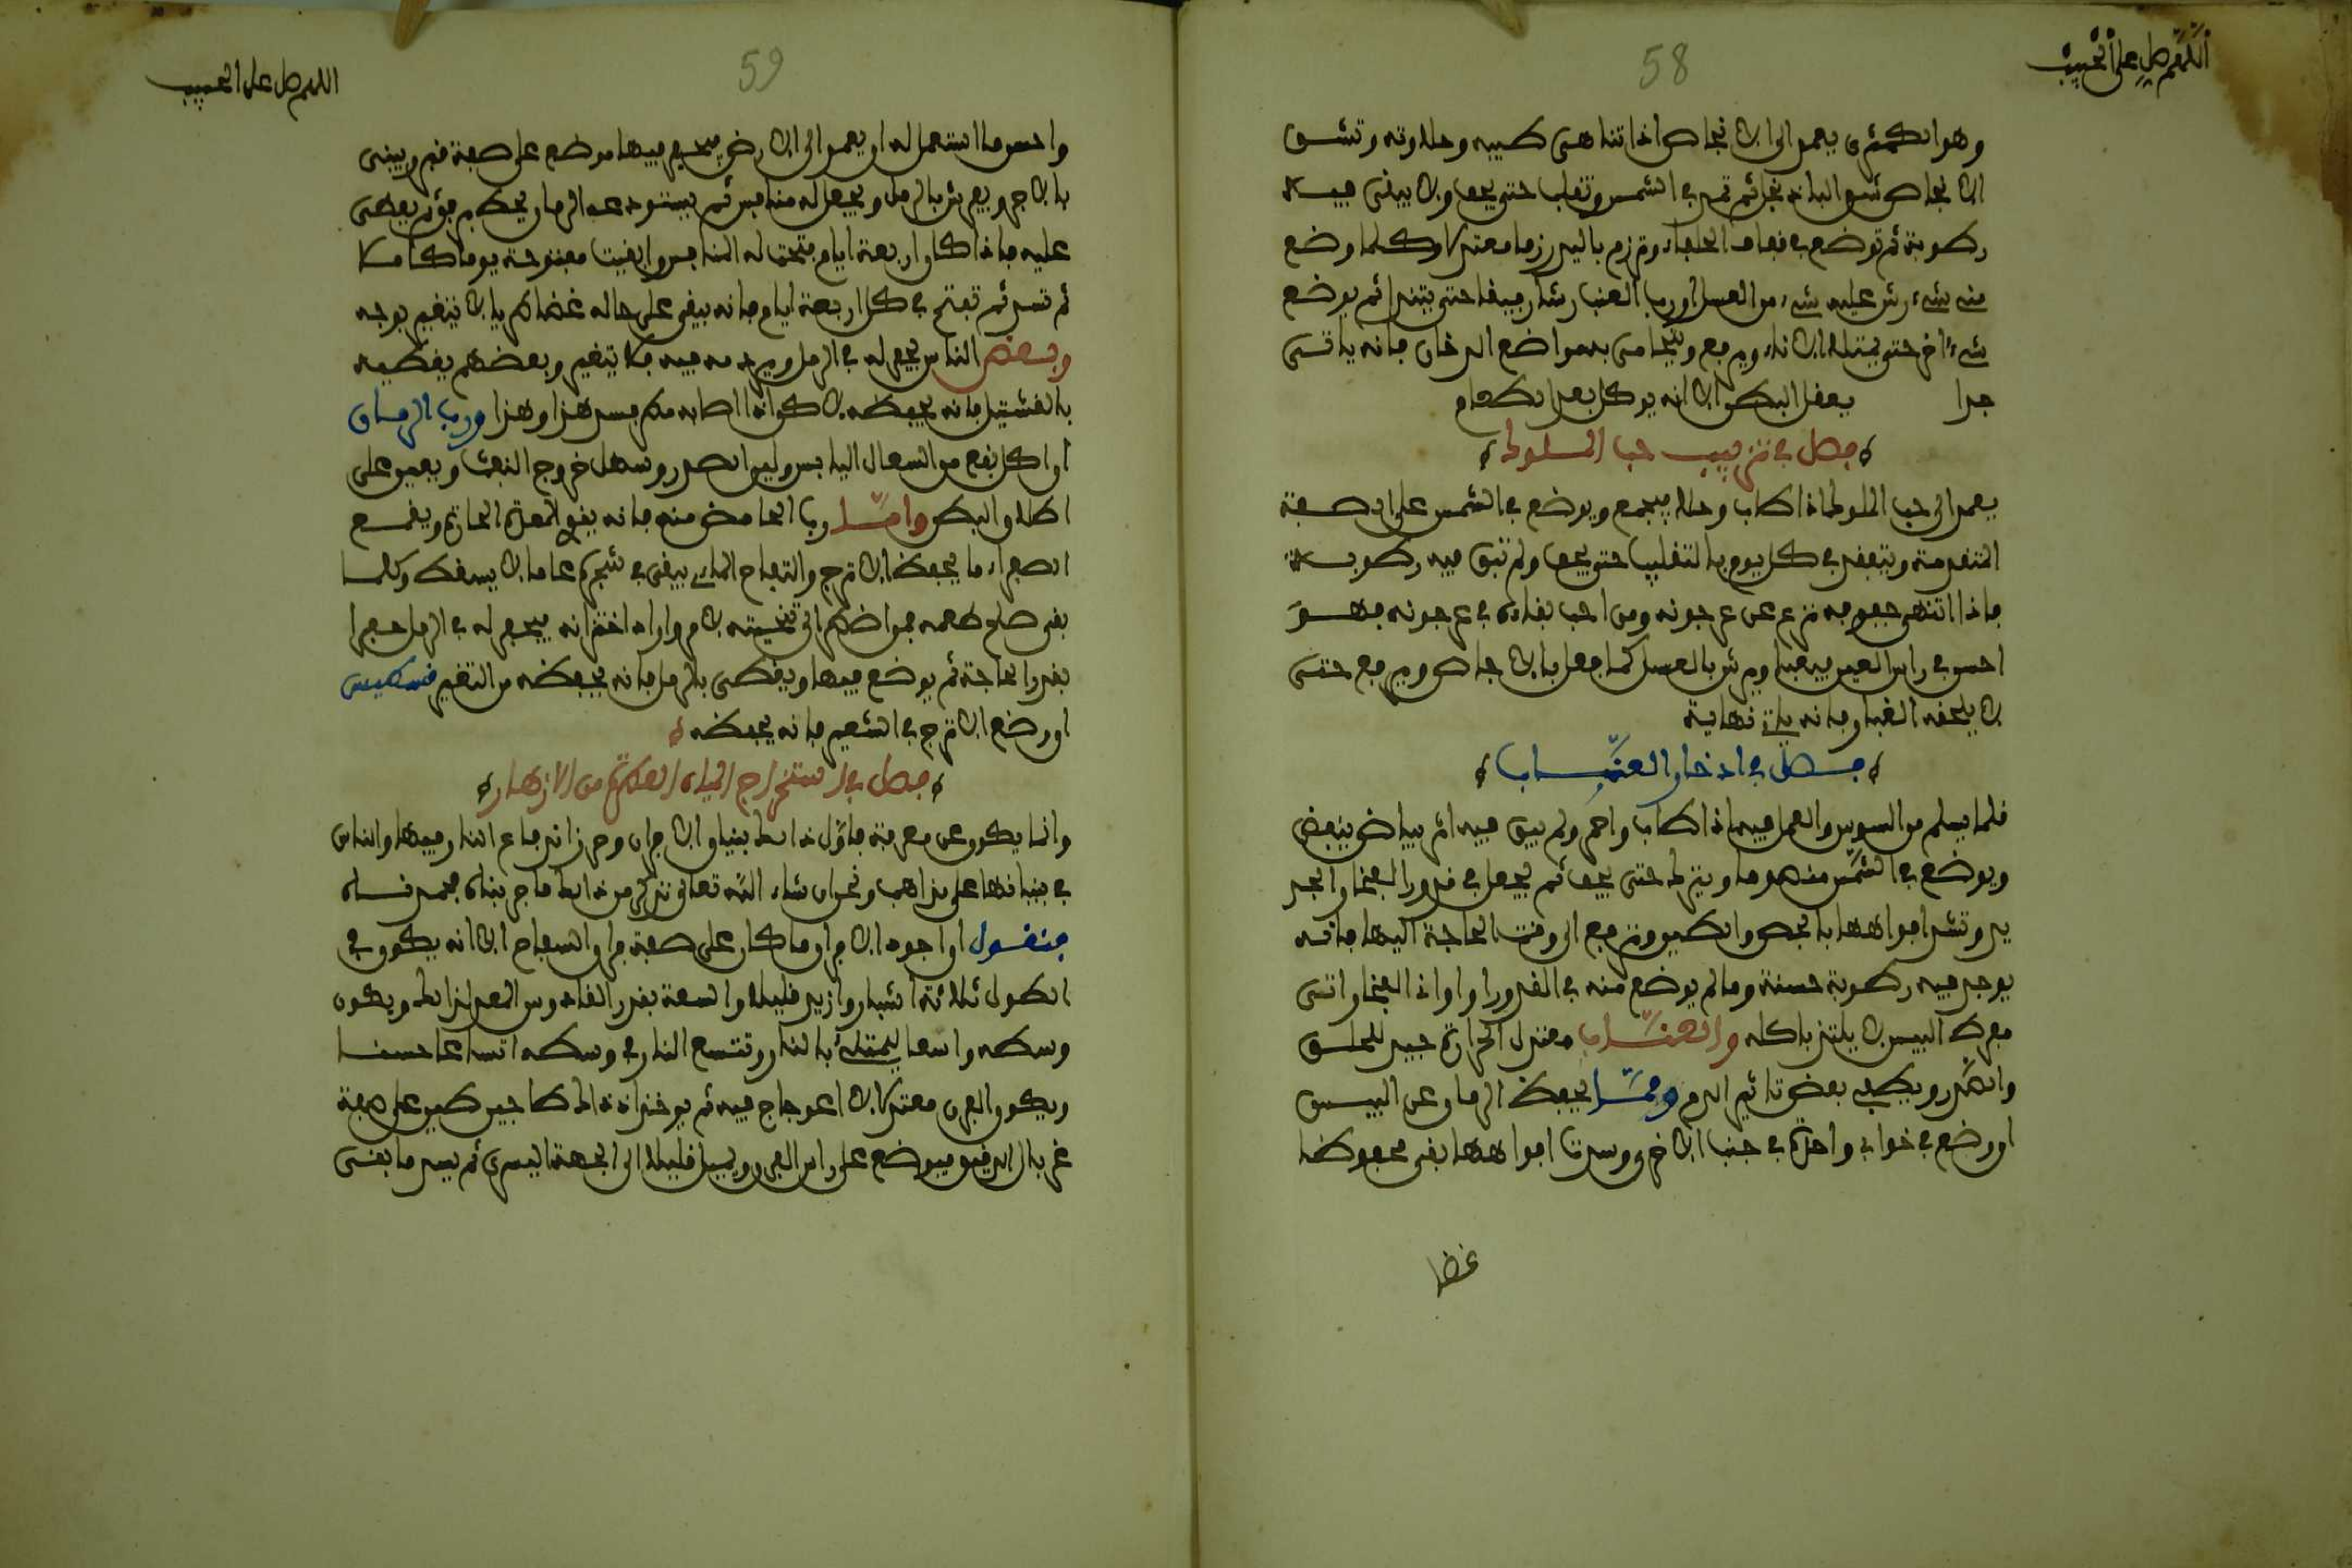 اللهم صل على الحبيب
58
وهو الكمثرى يعمد الى الانجاص اذا تناهى طيبه وحلاوته وتشق
الانجاص شق الباذنجان ثم تمد في الشمس وتقلب حتى يجف ولا يبقى فيه
رطوبة ثم توضع في قفاف الحلفاء وترزم باليد رزما معتدلا وكلما وضع
منه شيء رش عليه شيء من العسل او رب العنب رشا رقيقا حتى يتندا ثم يوضع
شيء اخر حتى يمتلئ الاناء ويرفع ويتحامى به مواضع الدخان فانه ياتي
جدا يعقل البطن الا انه يوكل بعد الطعام
فصل في تزبيب حب الملوك
يعمد الى حب الملوك اذا طاب وحلا فيجمع ويوضع في الشمس على الصفة
المتقدمة ويتفقد في كل يوم بالتقليب حتى يجف ولم تبق فيه رطوبة
فاذا انتهى جفوفه نزع عن عرجونه ومن احب بقاءه في عرجونه فهو
احسن في راي العين فيعبا ويرش بالعسل كما فعل بالانجاص ويرفع حتى
لا يلحقه الغبار فانه ياتي نهاية
فصل في ادخار العناب
فلما يسلم من السوس والعمل فيه اذا طاب واحمر ولم يبق فيه اثر بياض ينفض
ويوضع في الشمس منه وما ويترك حتى يجف ثم يجعل في قدور الفخار الجد
يد وتشد افواهها بالجص والطين وترفع الى وقت الحاجة اليها فانه
يوجد فيه رطوبة حسنة وما لم يوضع منه في القدور او اواني الفخار اتى
مفرط اليبس لا يلتذ باكله والعناب معتدل الحرارة جيد للحلق
والصدر ويطفي بعض تاثير الدم ومما يحفظ الرمان عن اليبس
او وضع في خوابي واحدة في جنب الاخرى وسدت افواهها بقي محفوظا
غضا
اللهم صل على الحبيب
59
واحسن ما استعمل له ان يعمد الى الارض فيحفر فيها موضع على صفة قبر ويبنى
بالاجر ويفرش بالرمل ويجعل له منافس ثم يستودعه الرمان يحط برفق ثم يغطى
عليه فاذا كان اربعة ايام فتحت له المنافس وابقيت مفتوحة يوما كاملا
ثم تسد ثم تفتح في كل اربعة ايام فانه يبقى على حاله غضا طريا لا يتغير بوجه
وبعض الناس يجعله في الرمل ويردمه فيه فلا يتغير وبعضهم يغطيه
بالقشتيل فانه يحفظه لا كن اذا اصابه مطر يفسد هذا وهذا ورب الرمان
اذا اكل نفع من السعال اليابس ولين الصدر وسهل خروج النفث ويعين على
اطلاق البطن واما رب الحامض منه فانه يقوي المعدة الحارة ويقمع
الصفراء ما يحفظ الاترج والتفاح الماي يبقى في شجره عاما لا يسقط وكلما
بقي صلح طعمه فمواضبته الى تخبيته لامر واراد اختزانه فيحفر له في الرمل حفرا
بقدر الحاجة ثم يوضع فيها ويغطى بالرمل فانه يحفظه من التغير
او وضع الاترج في الشعير فانه يحفظه
فصل في استخراج المياه العطرة من الازهار
وانما يكون عن معرفة فاول ذالك بنيان الافران وحرزانه فاع النار فيها والناس
في بنيانها على مذاهب ونحن ان شاء الله تعالى نذكر من ذالك ما جربناه فحمدناه
فنقول ان اجود الافران ما كان على صفة فران السفاج الا انه يكون في
الطول ثلاثة اشبار وازيد قليلا واسعة بقدر القادوس المعد لذالك ويكون
وسطه واسعا ليمتلئ بالنار وتتسع النار في وسطه اتساعا حسنا
ويكون الفرن معتدلا لا اعوجاج فيه ثم يوخذ اذ ذاك طاجين طين على صفة
غربال الدقيق فيوضع على راس الفرن ويميل قليلا الى الجهة اليسرى ثم يسد ما بقي